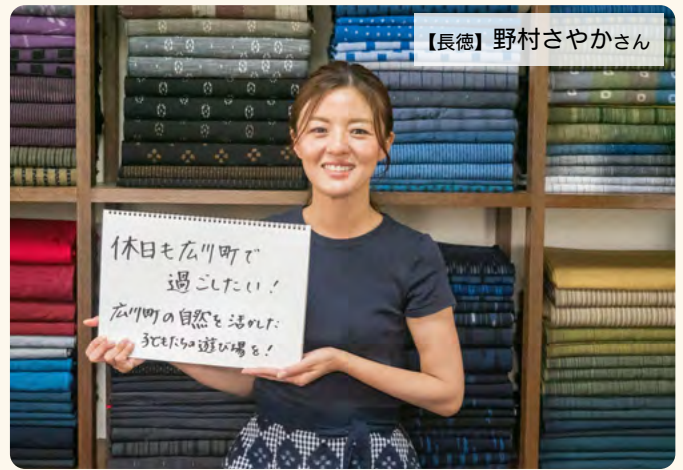 【長徳】野村さやかさん
休日も広川町で
過ごしたい!
広川町の自然を活かした
子どもたちの遊び場を!